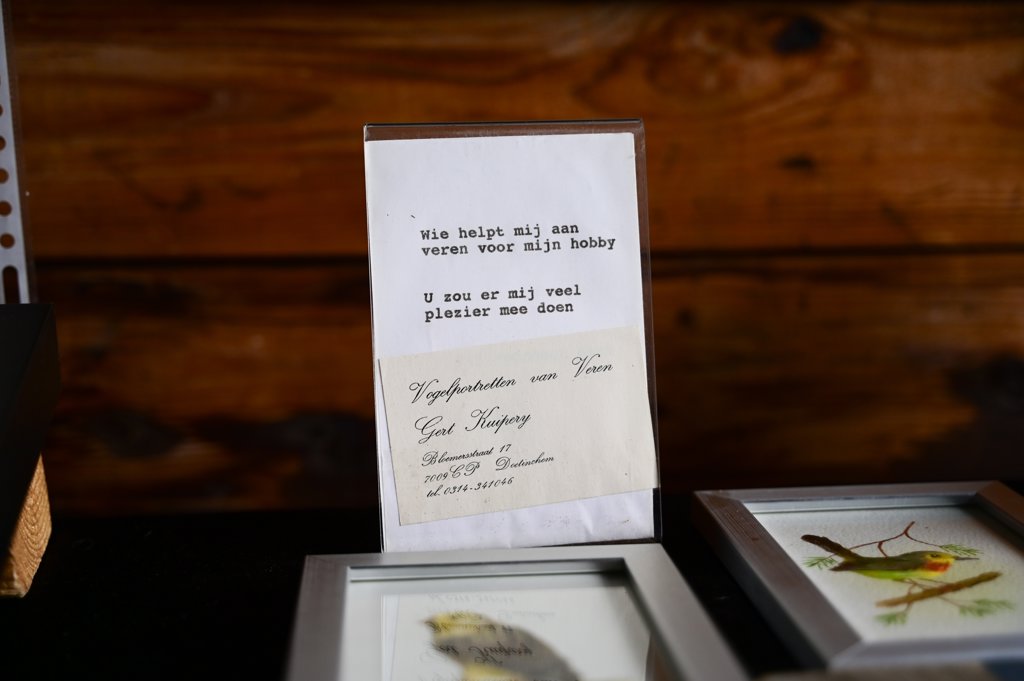 Wie helpt mij aan
veren voor mijn hobby
U zou er mij veel
plezier mee doen
Vogelportretten van Veren
Gert Kuipery
Bloemersstraat 17
7009 CP Doetinchem
tel. 0314-341046